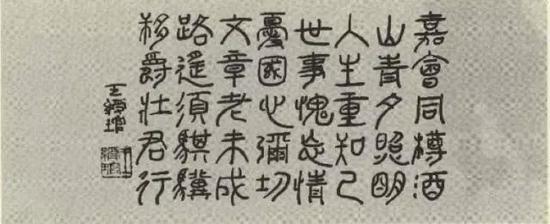 嘉會同樽酒
山青夕照明
人生重知己
世事愧忘情
憂國心彌切
文章老未成
路遙須騏驥
移爵壯君行